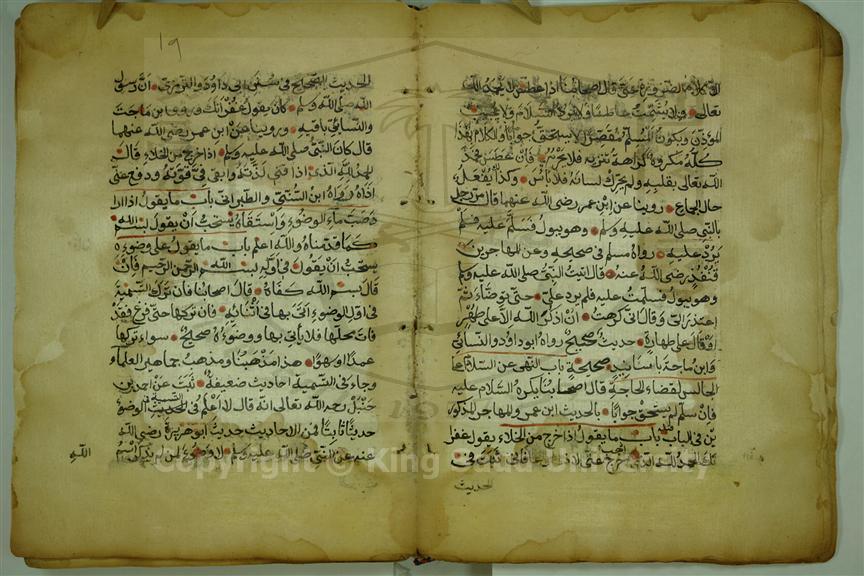 الى كلام الصوفي عنى قال اصحابنا اذا عطس لا يحمد الله
تعالى ولا يشمت عاطسا ولا يرد السلام ولا يجيب
المؤذن ويكون المسلم مقصرا لا يستحق جوابا والكلام بهذا
كله مكروه كراهة تنزيه فلا يحرم فان عطس فحمد
الله تعالى بقلبه ولم يحرك لسانه فلا باس وكذا يفعل
حال الجماع روينا عن ابن عمر رضي الله عنهما قال مر رجل
بالنبي صلى الله عليه وسلم وهو يبول فسلم عليه فلم
يرد عليه رواه مسلم في صحيحه وعن المهاجر بن
قنفذ رضي الله عنه قال اتيت النبي صلى الله عليه وسلم
وهو يبول فسلمت عليه فلم يرد علي حتى توضاء ثم
اعتذر الي وقال اني كرهت ان اذكر الله الا على طهر
او قال على طهارة حديث صحيح رواه ابو داود والنسائي
وابن ماجة باسانيد صحيحة باب النهي عن السلام على
الجالس لقضاء الحاجة قال اصحابنا يكره السلام عليه
فان سلم لم يستحق جوابا بالحديث ابن عمر والمهاجر المذكور
ين في الباب قبله باب ما يقول اذا خرج من الخلاء يقول غفرا
نك الحمد لله الذي اذهب عني الاذى وعافاني ثبت في
الحديث
١٩
الحديث الصحيح في سنن ابي داود والترمذي ان رسول
الله صلى الله وسلم كان يقول غفرانك وروى ابن ماجة
والنسائي باقيه وروينا عن ابن عمر رضي الله عنهما
قال كان النبي صلى الله عليه وسلم اذا خرج من الخلاء قال
الحمد لله الذي اذاقني لذته وابقى في قوته ودفع عني
اذاه رواه ابن السني والطبراني باب ما يقول اذا اراد
صب ماء الوضوء واستقاه يستحب ان يقول بسم الله
كما قدمناه والله اعلم باب ما يقول على وضوءه
يستحب ان يقول في اوله بسم الله الرحمن الرحيم فان
قال بسم الله كفاه قال اصحابنا فان ترك التسمية
في اول الوضوء اتى بها في اثنائه فان تركها حتى فرغ فقد
فات محلها فلا يأتي بها ووضوءه صحيح سواء تركها
عمدا او سهوا هذا مذهبنا ومذهب جماهير العلماء
وجاء في التسمية احاديث ضعيفة ثبت عن احمد بن
حنبل رحمه الله تعالى انه قال لا اعلم في التسمية في الوضوء
حديثا ثابتا فمن الاحاديث حديث ابو هريرة رضي الله
عنه عن النبي صلى الله عليه وسلم لا وضوء لمن لم يذكر اسم
الله
Copyright © King Saud University